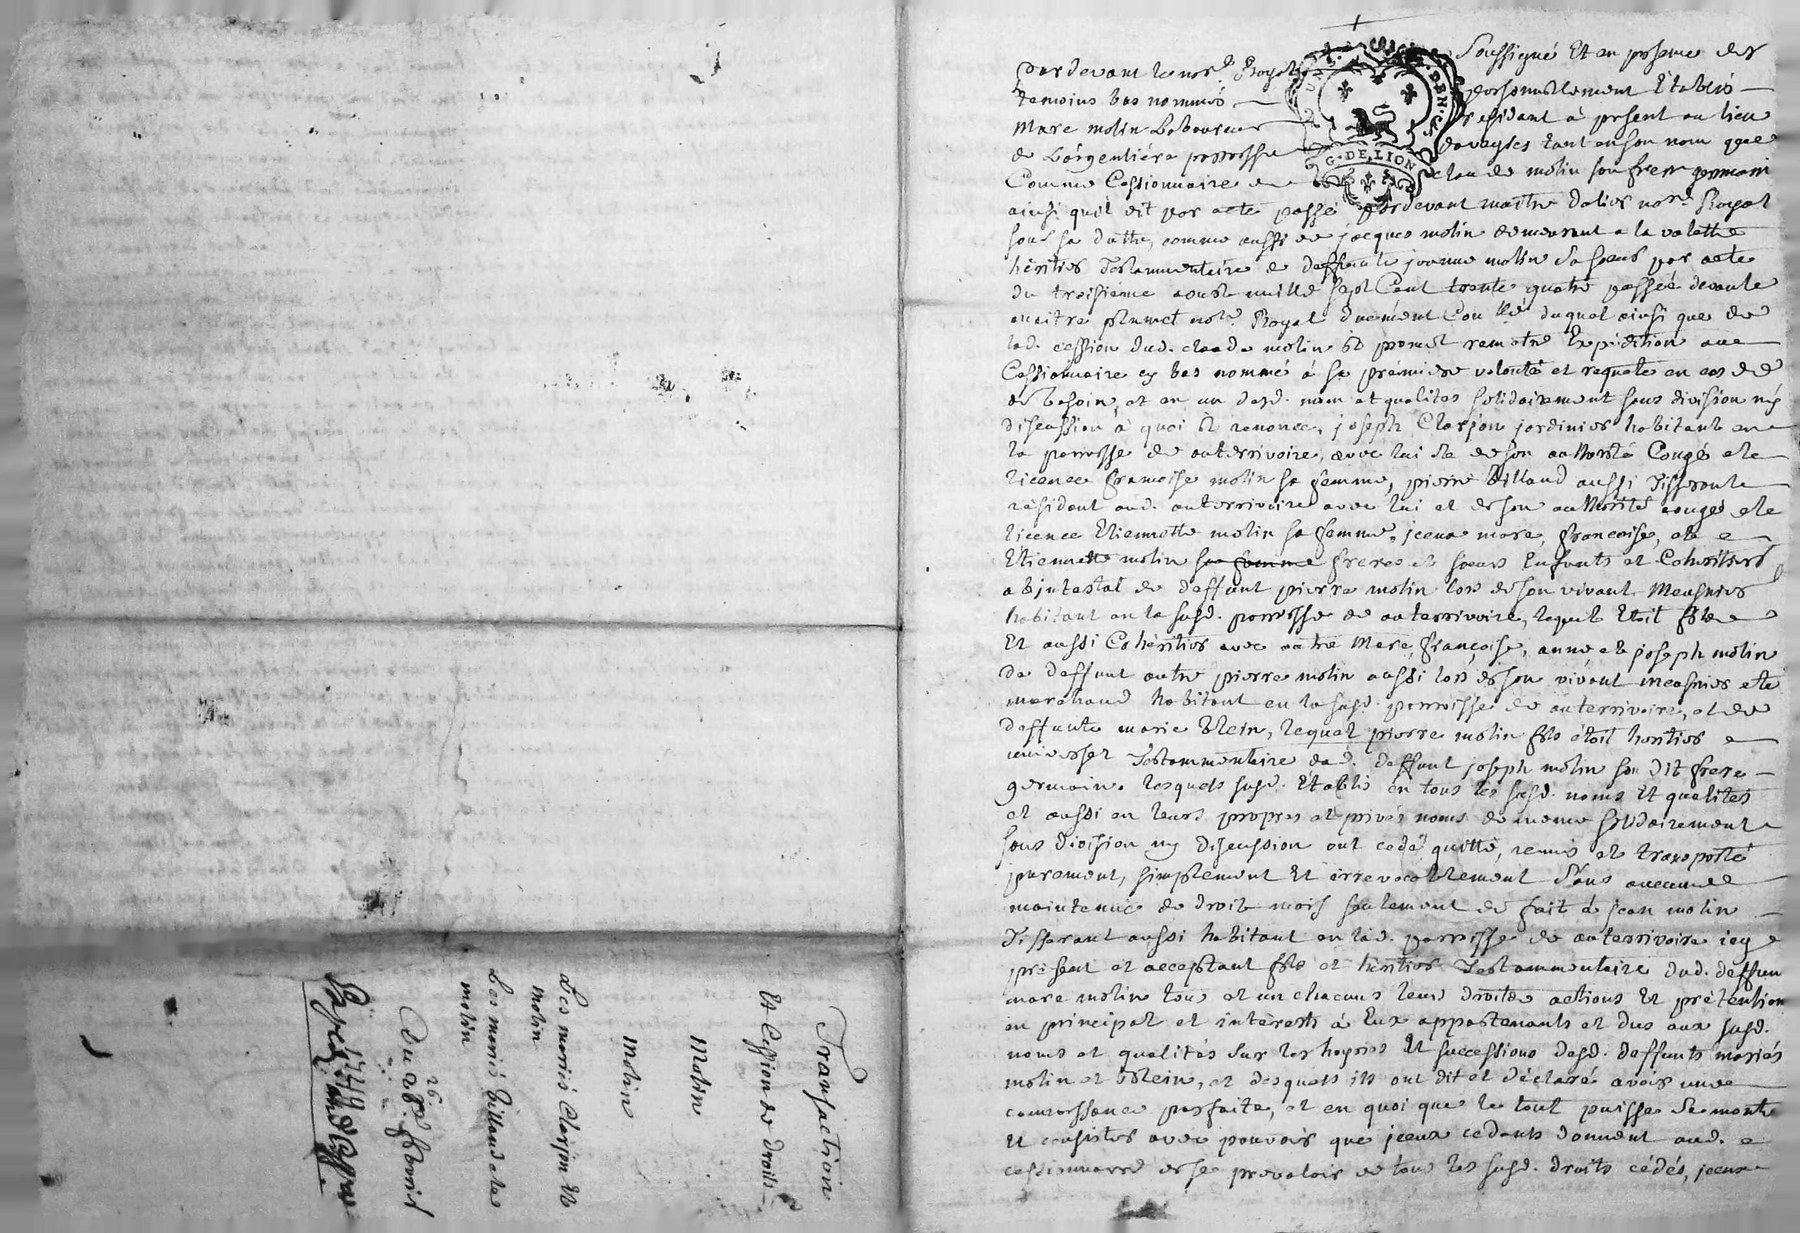 Transaction
Et Cession de droits
Molin
Molin
Les mariés Clarjon et
molin
Les mariés Billaud et
molin
Du 26
1749
G. DE LION
par devant le nore. Royal Soussigné Et en presence des
temoins bas nommés personnellement Etablis
Marc molin Laboureur residant à present au lieu
de Largentiére parroisse tant en son nom que
Comme Cessionnaire de claude molin son frere germain
ainsi quil dit par acte passé pardevant maitre Dalier nore. Royal
sous sa datte, comme aussi de jacques molin demeurant a la valette
héritier Testammentaire de deffunte jeanne molin sa soeur par acte
du troisiéme aoust mille sept Cent trente quatre passée devant
maitre plumet nore. Royal duement Con.llé duquel ainsi que de
lad. cession dud. claude molin il promet remettre Expédition au
Cessionnaire cy bas nommé á sa prémiere volonté et requete en cas de
de besoin, et en un desd. nom et qualites solidairement sans division ny
discussion à quoi il renonce, joseph Clarjon jardinier habitant en
la parroisse de auterrivoire, avec lui et de son authorité Congé et
licence francoise molin sa femme, pierre Billaud aussi Tisserant
résidant aud. auterrivoire avec lui et de son authorité congé et
licence Etiennette molin sa femme, iceux marc, francoise, et
Etiennette molin sa femme freres et soeurs Enfants et Cohéritiers
abjntestat de deffunt pierre molin lors de son vivant Meusnier
habitant en la susd. parroisse de auterrivoire, lequel Etoit fils
Et aussi Cohéritier avec autre Marc, françoise, anne et joseph molin
de deffunt autre pierre molin aussi lors de son vivant meusnier et
marchand habitant en la susd. parroisse de auterrivoire, et de
deffunte marie Blein, lequel pierre molin fils étoit heritier
universel Testammentaire dud. deffunt joseph molin son dit frere
germain. lesquels susd. Etablis en tous les susd. noms Et qualités
et aussi en leurs propres et privés noms de meme solidairement
sans division ny discussion ont cedé quitté, remis et transporté
purement, simplement Et irrevocablement sans aucune
maintenüe de droit mais seulement de fait à jean molin
Tisserant aussi habitant en lad. parroisse de auterrivoire icy
présent et acceptant fils et héritier Testammentaire dud. deffun
marc molin tous et un chacuns leurs droits actions Et prétention
en principal et intérests à Eux appartenants et dus aux susd.
noms et qualités sur les hoyries Et successions desd. deffunts mariés
molin et Blein, et desquels ils ont dit et déclaré avoir une
connoissance parfaite, et en quoi que le tout puisse se monter
Et consister avec pouvoir que jceux cedants donnent aud.
cessionnaire de se prevaloir de tous les susd. droits cédés, jceux